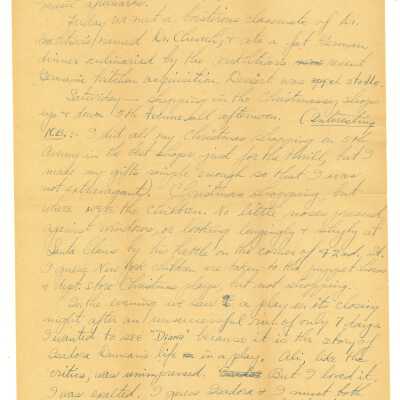 music afterwards.
Friday we met a boisterous classmate of Dr.
named Dr. Church, & ate a fat German
dinner culinaried by the recent
Germanic kitchen acquisition. Dessert was apfel
Saturday — shopping in the Christmassy shops
up & down 5th Avenue all afternoon. (Interesting
N.B.:- I did all my Christmas shopping on 5th
Avenue in the best shops just for the thrill, but I
made my gifts simple enough so that I was
not extravagant). Christmas shopping, but
where were the children. No little noses pressed
against windows, or looking longingly & shyly at
Santa Claus by his kettle on the corner of 42nd St.
I guess New York children are taken to the puppet shows
& dept. store Christmas plays, but not shopping.
In the evening we saw a play on its closing
night after an unsuccessful run of only 7 days.
I wanted to see "Diana" because it is the story of
Isadora Duncan's life in a play. Ali, like the
critics, was unimpressed. But I loved it,
I was exalted. I guess Isadora & I must both